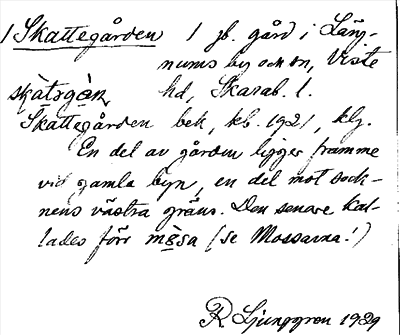 1 Skattegården 1 jb. gård i Läng-
nums by och sn, Viste
skàtǝgàṇ hd, Skarab. l.
Skattegården bet, kb. 1921, klj.
En del av gården ligger framme
vid gamla byn, en del mot sock-
nens västra gräns. Den senare kal-
lades förr mǝsa (se Mossarna!)
R Ljunggren 1929